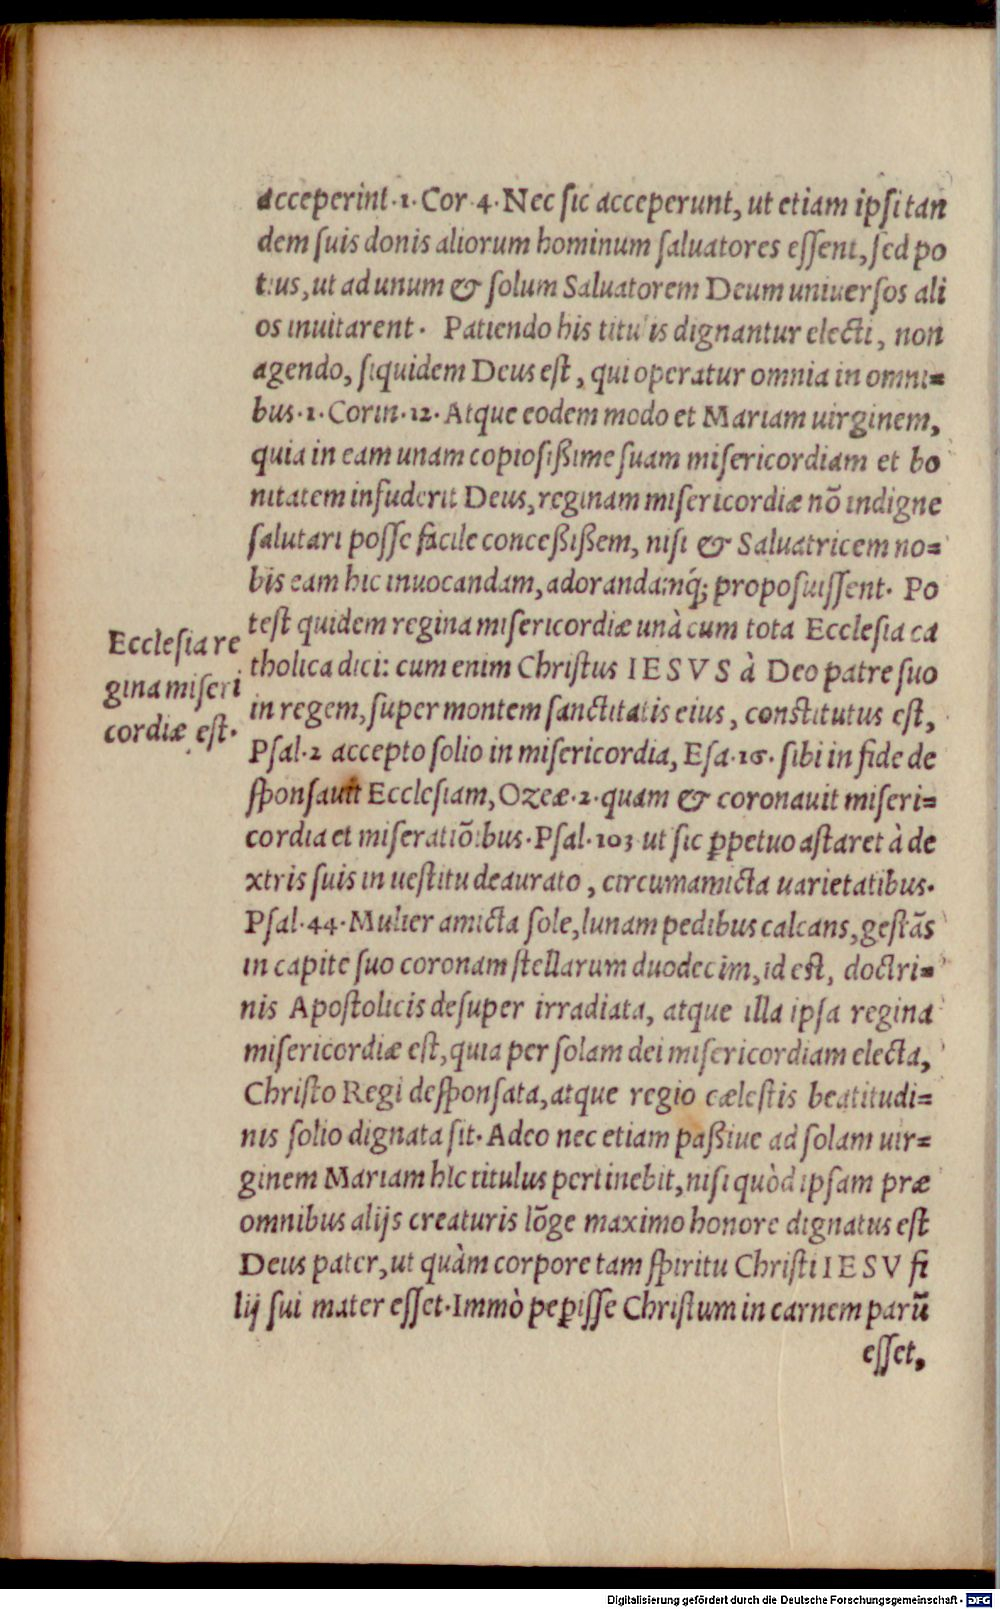 acceperint·1·Cor·4·Nec sic acceperunt, ut etiam ipsi tan
dem suis donis aliorum hominum saluatores essent, sed po
tius, ut ad unum & solum Saluatorem Deum uniuersos ali
os inuitarent· Patiendo his titulis dignantur electi, non
agendo, siquidem Deus est, qui operatur omnia in omni=
bus·1·Corin·12·Atque eodem modo et Mariam uirginem,
quia in eam unam copiosißime suam misericordiam et bo
nitatem infuderit Deus, reginam misericordiæ nō indigne
salutari posse facile conceßißem, nisi & Saluatricem no=
bis eam hic inuocandam, adorandamq́; proposuissent· Po
test quidem regina misericordiæ unà cum tota Ecclesia ca
tholica dici: cum enim Christus IESVS à Deo patre suo
in regem, super montem sanctitatis eius, constitutus est,
Psal·2 accepto solio in misericordia, Esa·16· sibi in fide de
sponsauit Ecclesiam, Ozeæ·2·quam & coronauit miseri=
cordia et miseratiōibus·Psal·103 ut sic ꝑpetuo astaret à de
xtris suis in uestitu deaurato, circumamicta uarietatibus·
Psal·44·Mulier amicta sole, lunam pedibus calcans, gestās
in capite suo coronam stellarum duodecim, id est, doctri=
nis Apostolicis desuper irradiata, atque illa ipsa regina
misericordiæ est, quia per solam dei misericordiam electa,
Christo Regi desponsata, atque regio cælestis beatitudi=
nis solio dignata sit·Adeo nec etiam paßiue ad solam uir=
ginem Mariam hic titulus pertinebit, nisi quòd ipsam præ
omnibus alijs creaturis lōge maximo honore dignatus est
Deus pater, ut quàm corpore tam spiritu Christi IESV fi
lij sui mater esset·Immò peꝑisse Christum in carnem parū
esset,
Ecclesia re
gina miseri
cordiæ est·
Digitalisierung gefördert durch die Deutsche Forschungsgemeinschaft - DFG